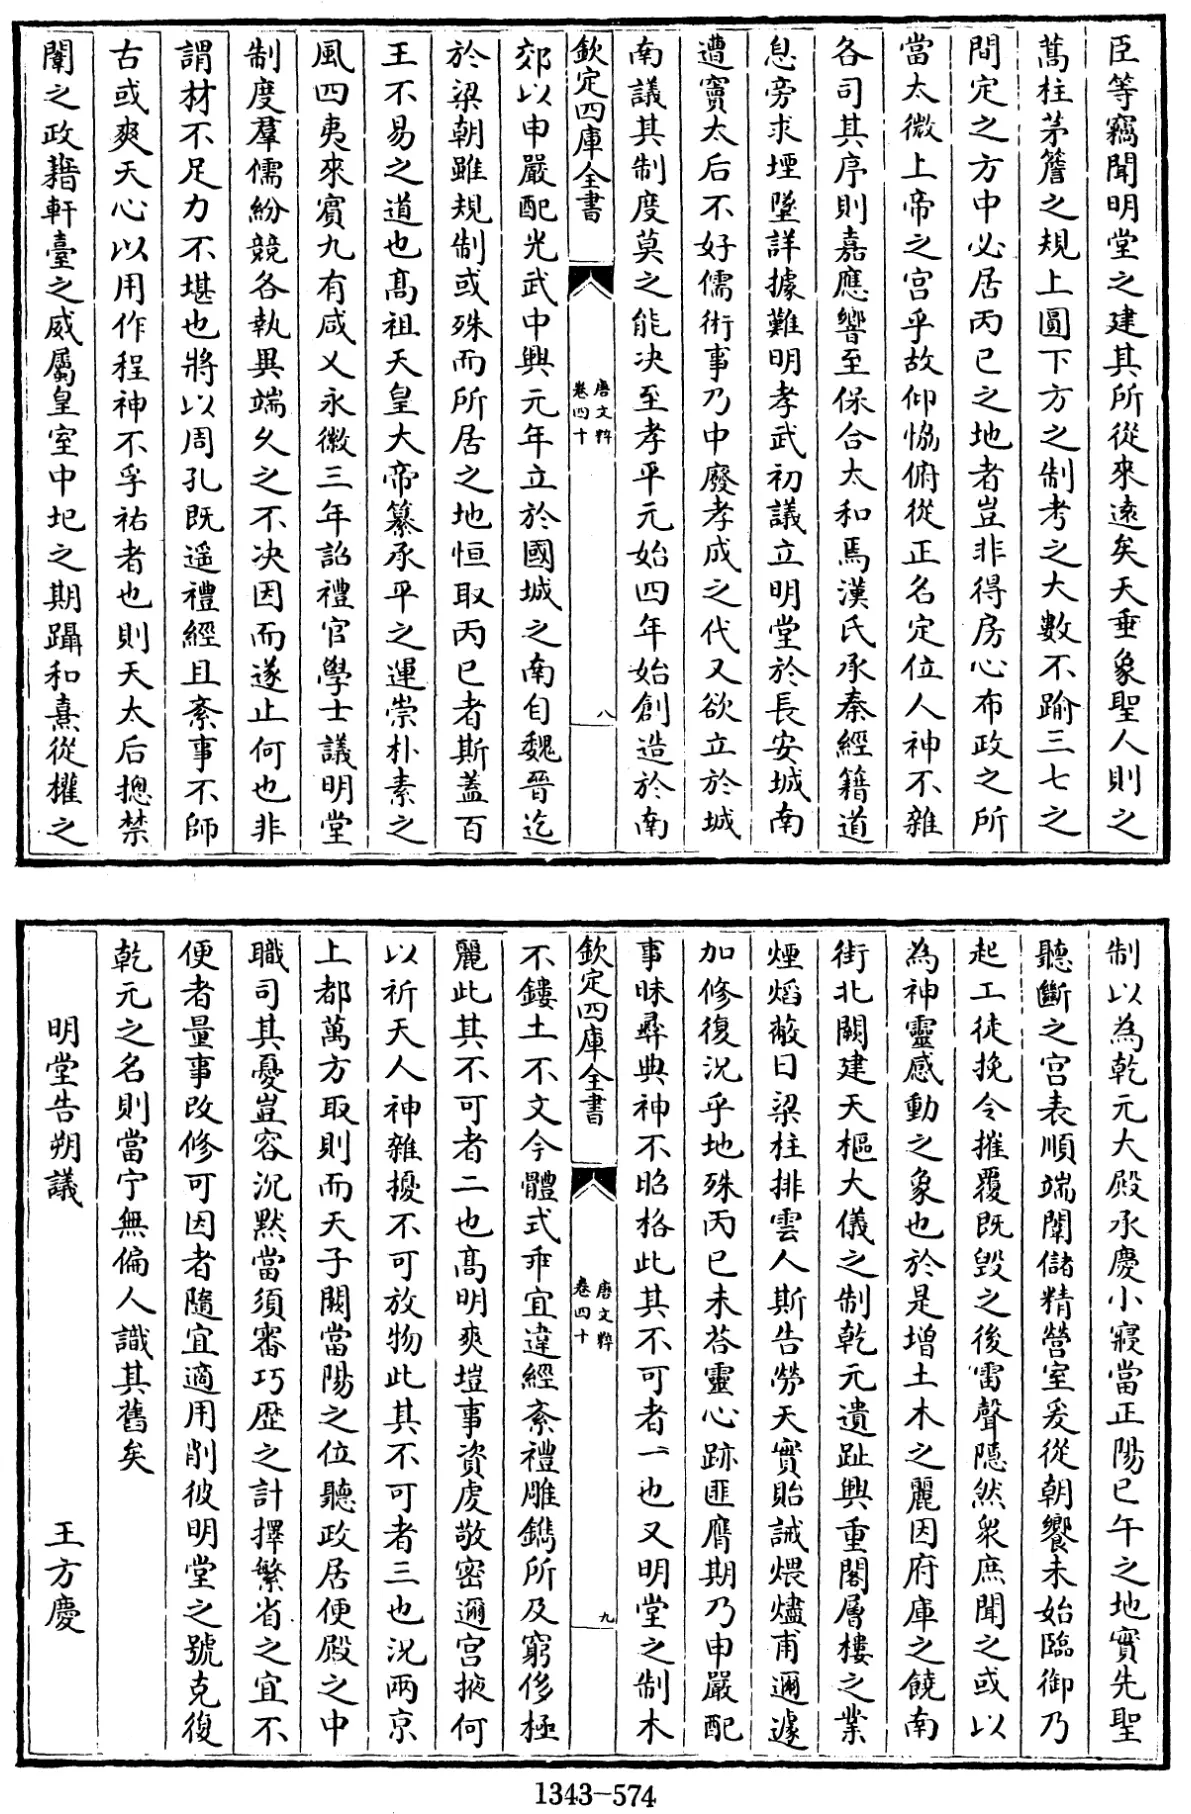 臣等竊聞明堂之建其所從來遠矣天垂象聖人則之
蒿柱茅簷之規上圓下方之制考之大數不踰三七之
間定之方中必居丙巳之地者豈非得房心布政之所
當太微上帝之宫乎故仰恊俯從正名定位人神不雜
各司其序則嘉應響至保合太和焉漢氏承秦經籍道
息旁求堙墜詳據難明孝武初議立明堂於長安城南
遭竇太后不好儒術事乃中廢孝成之代又欲立於城
南議其制度莫之能决至孝平元始四年始創造於南
欽定四庫全書
唐文粹
卷四十
八
郊以申嚴配光武中興元年立於國城之南自魏晉迄
於梁朝雖規制或殊而所居之地恒取丙巳者斯蓋百
王不易之道也髙祖天皇大帝纂承平之運崇朴素之
風四夷來賓九有咸乂永徽三年詔禮官學士議明堂
制度羣儒紛競各執異端久之不决因而遂止何也非
謂材不足力不堪也將以周孔既遥禮經且紊事不師
古或爽天心以用作程神不孚祐者也則天太后揔禁
闈之政藉軒臺之威屬皇室中圮之期躡和熹從權之
制以為乾元大殿承慶小寢當正陽已午之地實先聖
聽斷之宫表順端闈儲精營室爰從朝饗未始臨御乃
起工徒挽令摧覆既毁之後雷聲隠然衆庶聞之或以
為神靈感動之象也於是增土木之麗因府庫之饒南
街北闕建天樞大儀之制乾元遺趾興重閣層樓之業
煙熖蔽日梁柱排雲人斯告勞天實貽誡煨燼甫邇遽
加修復况乎地殊丙巳未荅靈心跡匪膺期乃申嚴配
事昧彛典神不昭格此其不可者一也又明堂之制木
欽定四庫全書
唐文粹
卷四十
九
不鏤土不文今體式乖宜違經紊禮雕鐫所及窮侈極
麗此其不可者二也髙明爽塏事資䖍敬密邇宫掖何
以祈天人神雜擾不可放物此其不可者三也况兩京
上都萬方取則而天子闕當陽之位聽政居便殿之中
職司其憂豈容沉默當須審巧歴之計擇繁省之宜不
便者量事改修可因者隨宜適用削彼明堂之號克復
乾元之名則當宁無偏人識其舊矣
明堂告朔議 王方慶
1343-574